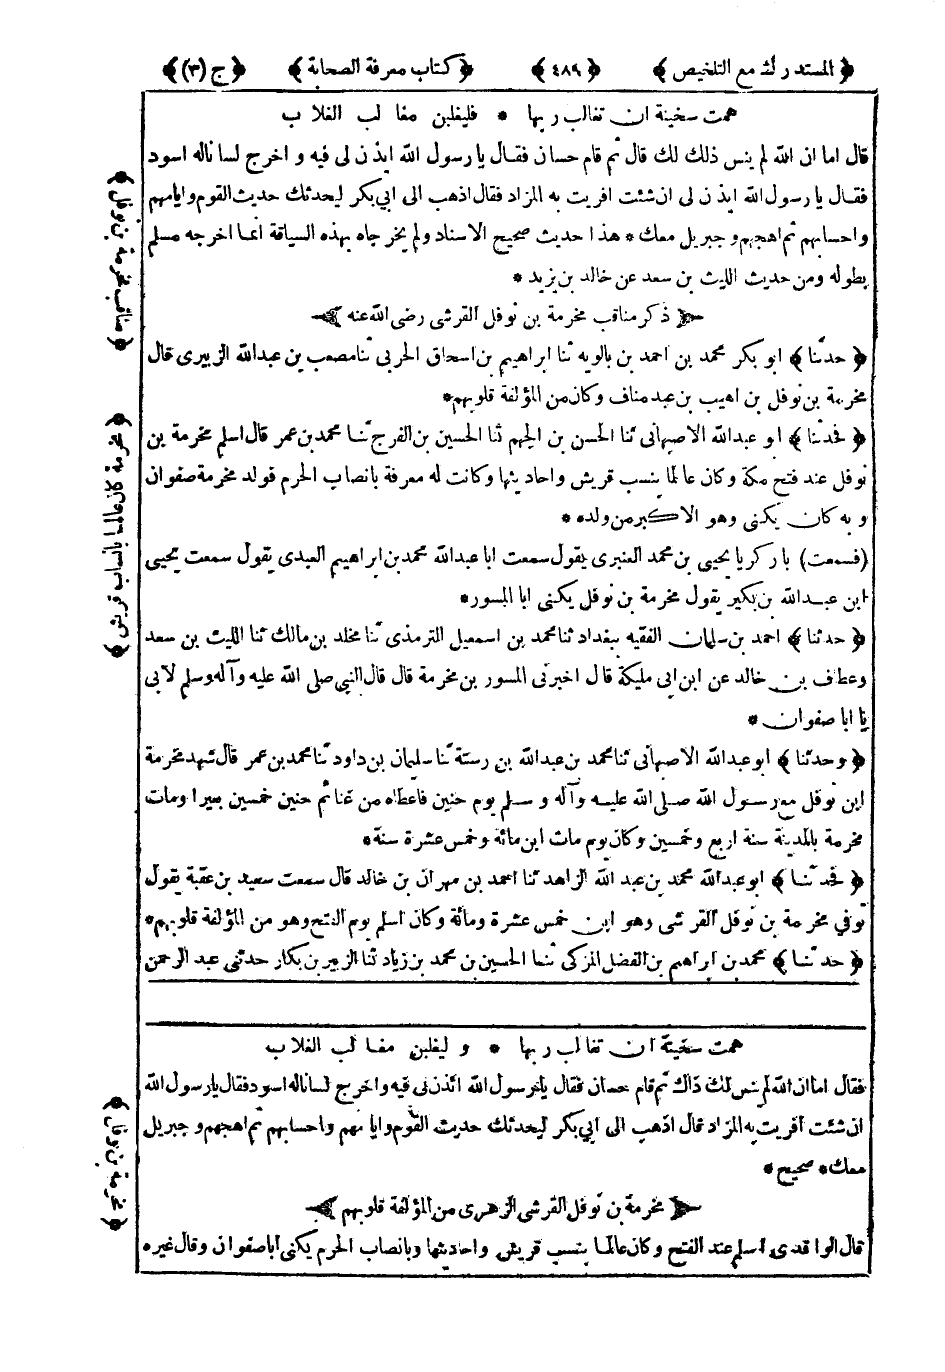 ﴿ المستدرك مع التلخيص ﴾ ﴿ ٤٨٩ ﴾ ﴿ كتاب معرفة الصحابة ﴾ ﴿ ج (٣) ﴾
همت سخينة ان تغالب ربها * فليغلبن مغالب الغلاب
قال اما ان الله لم ينس ذلك لك قال ثم قام حسان فقال يا رسول الله ايذن لى فيه و اخرج لسانا له اسود
فقال يا رسول الله ايذن لى ان شئت افريت به المزاد فقال اذهب الى ابي بكر ليحدثك حديث القوم و ايامهم
و احسابهم ثم اهجهم و جبريل معك * هذا حديث صحيح الاسناد ولم يخرجاه بهذه السياقة انما اخرجه مسلم
بطوله ومن حديث الليث بن سعد عن خالد بن يزيد *
﴿ ذكر مناقب مخرمة بن نوفل القرشى رضى الله عنه ﴾
﴿ حدثنا ﴾ ابو بكر محمد بن احمد بن بالويه ثنا ابراهيم بن اسحاق الحربى ثنا مصعب بن عبد الله الزبيرى قال
مخرمة بن نوفل بن اهيب بن عبد مناف وكان من المؤلفة قلوبهم *
﴿ فحدثنا ﴾ ابو عبد الله الاصبهانى ثنا الحسن بن الجهم ثنا الحسين بن الفرج ثنا محمد بن عمر قال اسلم مخرمة بن
نوفل عند فتح مكة وكان عالما بنسب قريش واحاديثها وكانت له معرفة بانصاب الحرم فولد مخرمة صفوان
و به كان يكنى وهو الاكبر من ولده *
(فسمعت) با زكريا يحيى بن محمد العنبرى يقول سمعت ابا عبد الله محمد بن ابراهيم العبدى يقول سمعت يحيى
ابن عبد الله بن بكير يقول مخرمة بن نوفل يكنى ابا المسور *
﴿ حدثنا ﴾ احمد بن سلمان الفقيه ببغداد ثنا محمد بن اسمعيل الترمذى ثنا مخلد بن مالك ثنا الليث بن سعد
وعطاف بن خالد عن ابن ابى مليكة قال اخبرنى المسور بن مخرمة قال قال النبي صلى الله عليه وآله وسلم لابى
يا ابا صفوان *
﴿ وحدثنا ﴾ ابو عبد الله الاصبهانى ثنا محمد بن عبد الله بن رستة ثنا سليمان بن داود ثنا محمد بن عمر قال شهد مخرمة
ابن نوفل مع رسول الله صلى الله عليه وآله وسلم يوم حنين فاعطاه من غنائم حنين خمسين بعيرا ومات
مخرمة بالمدينة سنة اربع وخمسين وكان يوم مات ابن مائة وخمس عشرة سنة *
﴿ فحدثنا ﴾ ابو عبد الله محمد بن عبد الله الزاهد ثنا احمد بن مهران بن خالد قال سمعت سعيد بن عقبة يقول
توفي مخرمة بن نوفل القرشى وهو ابن خمس عشرة ومائة وكان اسلم يوم الفتح وهو من المؤلفة قلوبهم *
﴿ حدثنا ﴾ محمد بن ابراهيم بن الفضل المزكى ثنا الحسين بن محمد بن زياد ثنا الزبير بن بكار حدثنى عبد الرحمن
همت سخينة ان تغالب ربها * وليغلبن مغالب الغلاب
فقال اما ان الله لم ينس لك ذاك ثم قام حسان فقال يا رسول الله ائذن لى فيه و اخرج لسانا له اسود فقال يا رسول الله
ان شئت افريت به المزاد قال اذهب الى ابي بكر ليحدثك حديث القوم و ايامهم واحسابهم ثم اهجهم و جبريل
معك * صحيح *
﴿ مخرمة بن نوفل القرشى الزهرى من المؤلفة قلوبهم ﴾
قال الواقدى اسلم عند الفتح وكان عالما بنسب قريش واحاديثها وبانصاب الحرم يكنى ابا صفوان وقال غيره
﴿ مناقب مخرمة بن نوفل ﴾
﴿ مخرمة كان عالما بانساب قريش ﴾
﴿ مخرمة بن نوفل ﴾